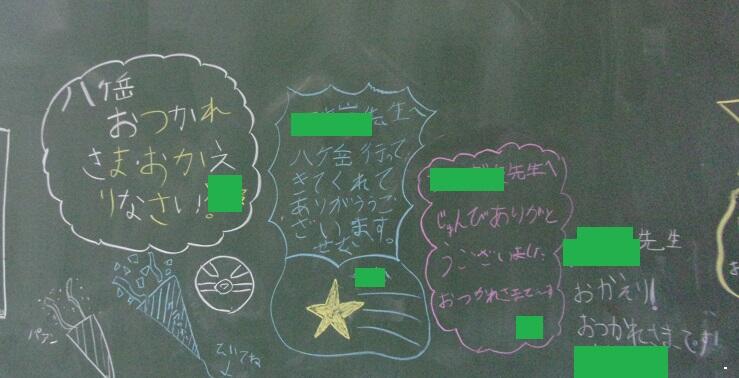 八ヶ岳
おつかれ
さま・おかえ
りなさい!
先生へ
八ヶ岳 行って
きてくれて
ありがううご
ざいます。
先生へ
じゅんびありがと
うございました
おつかれさまでーす
先生
おかえり!
おつかれさまです!
パァン